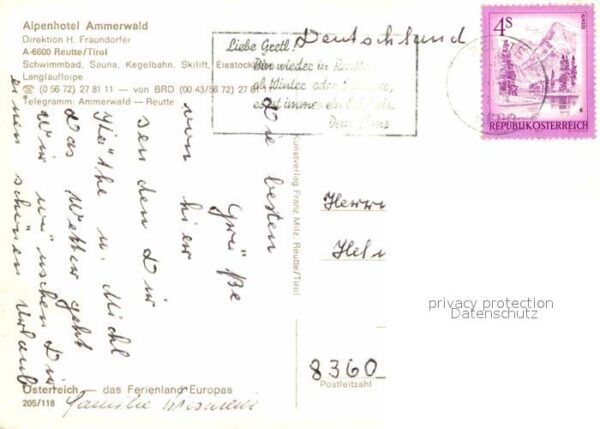 Alpenhotel Ammerwald
Direktion H. Fraundorfer
A-6600 Reutte/Tirol
Schwimmbad, Sauna, Kegelbahn, Skilift, Eisstock
Langlaufloipe
☎ (0 56 72) 27 81 11 — von BRD (00 43/56 72) 27 81
Telegramm: Ammerwald — Reutte
Liebe Gretl!
Bin wieder in Reutte
ob Winter oder Sommer,
es ist immer ein Erlebnis.
Dein Hans
Deutschland
4S
ALMSEE
REPUBLIK ÖSTERREICH
Die besten
Grüße
von hier
senden Dir
Käthe u. Michl
Das Wetter geht
Wir wünschen Dir
einen schönen Urlaub
Kunstverlag Franz Milz, Reutte/Tirol
Herrn
Hel
privacy protection
Datenschutz
8360
Postleitzahl
Österreich — das Ferienland Europas
205/118
Familie